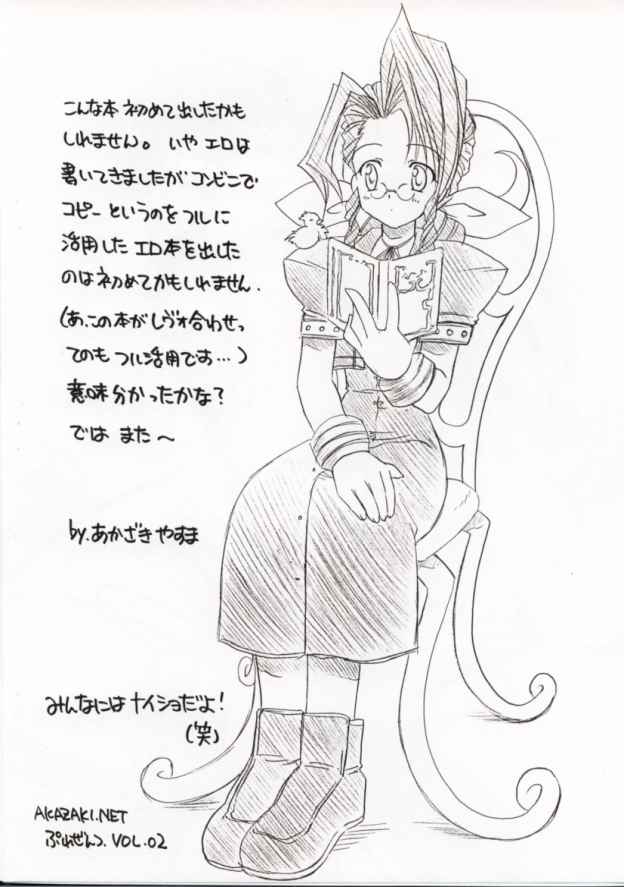 こんな本 初めて出したかも
しれません。 いや エロは
書いてきましたが コンビニで
コピー というのを フルに
活用した エロ本を出した
のは初めてかもしれません.
(あ、この本がレヴォ合わせっ
てのも フル活用です…)
意味分かったかな?
では また～
by.あかざきやすま
みんなには ナイショだよ!
(笑)
AKAZAKI.NET
ぷれぜんつ. VOL.02